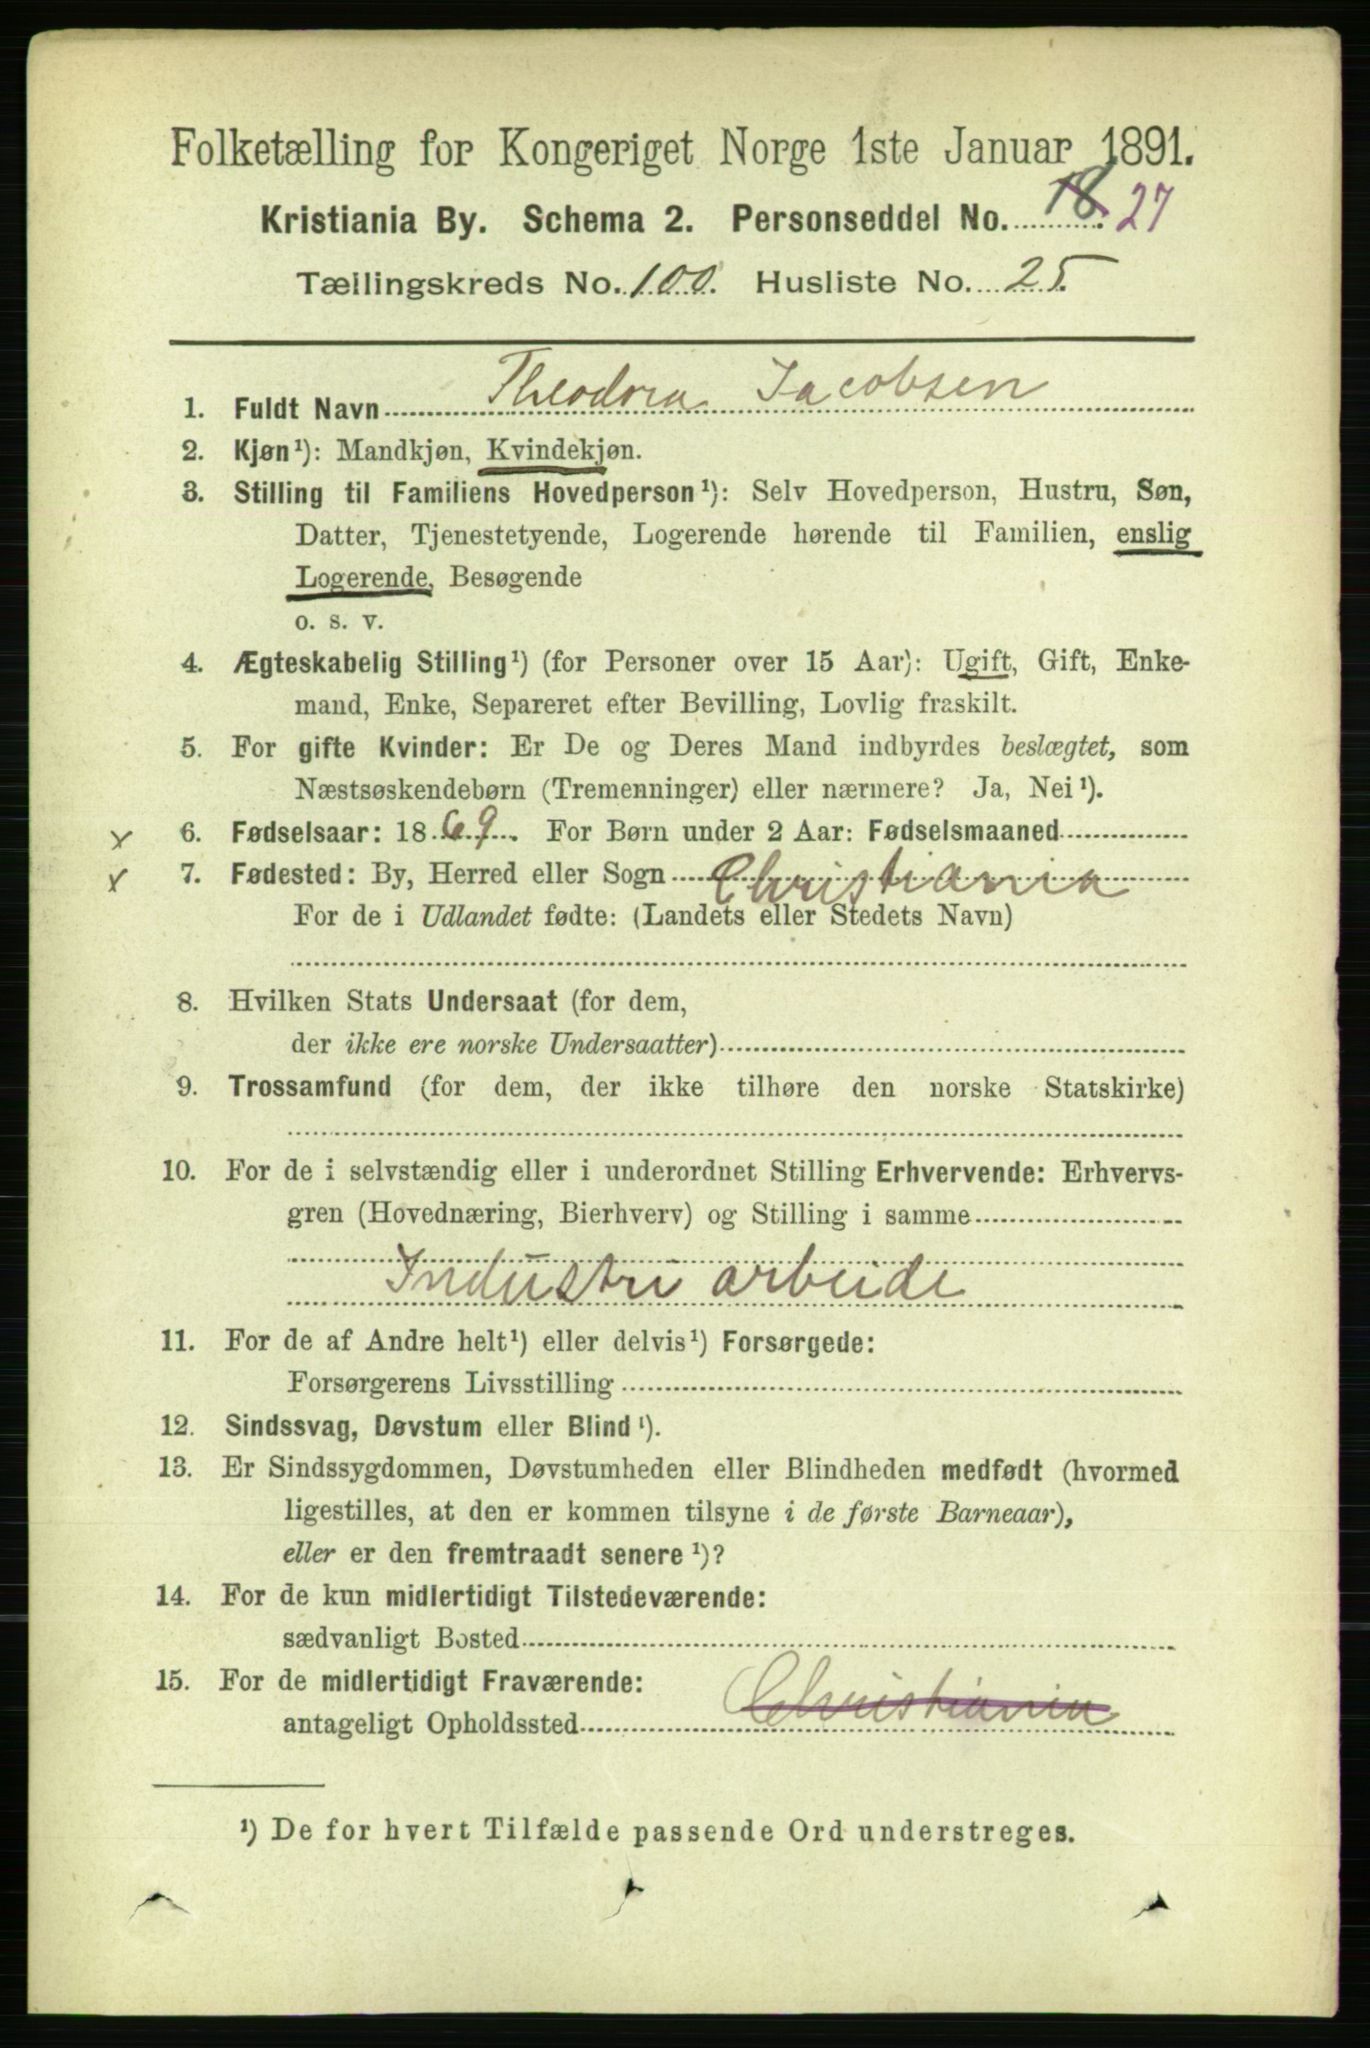 Folketælling for Kongeriget Norge 1ste Januar 1891.
Kristiania By. Schema 2. Personseddel No. 18. 27
Tællingskreds No. 100. Husliste No. 25.
1. Fuldt Navn Theodora Jacobsen
2. Kjøn¹): Mandkjøn, Kvindekjøn.
3. Stilling til Familiens Hovedperson¹): Selv Hovedperson, Hustru, Søn,
Datter, Tjenestetyende, Logerende hørende til Familien, enslig
Logerende, Besøgende
o. s. v.
4. Ægteskabelig Stilling¹) (for Personer over 15 Aar): Ugift, Gift, Enke-
mand, Enke, Separeret efter Bevilling, Lovlig fraskilt.
5. For gifte Kvinder: Er De og Deres Mand indbyrdes beslægtet, som
Næstsøskendebørn (Tremenninger) eller nærmere? Ja, Nei¹).
x 6. Fødselsaar: 1869. For Børn under 2 Aar: Fødselsmaaned
x 7. Fødested: By, Herred eller Sogn Christiania
For de i Udlandet fødte: (Landets eller Stedets Navn)
8. Hvilken Stats Undersaat (for dem,
der ikke ere norske Undersaatter)
9. Trossamfund (for dem, der ikke tilhøre den norske Statskirke)
10. For de i selvstændig eller i underordnet Stilling Erhvervende: Erhvervs-
gren (Hovednæring, Bierhverv) og Stilling i samme
Industri arbeide
11. For de af Andre helt¹) eller delvis¹) Forsørgede:
Forsørgerens Livsstilling
12. Sindssvag, Døvstum eller Blind¹).
13. Er Sindssygdommen, Døvstumheden eller Blindheden medfødt (hvormed
ligestilles, at den er kommen tilsyne i de første Barneaar),
eller er den fremtraadt senere¹)?
14. For de kun midlertidigt Tilstedeværende:
sædvanligt Bosted
15. For de midlertidigt Fraværende:
antageligt Opholdssted Christiania
¹) De for hvert Tilfælde passende Ord understreges.